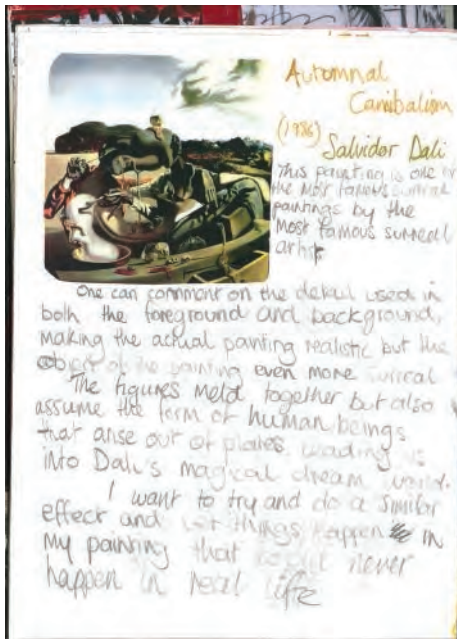 Automnal
Canibalism
(1936)
Salvidor Dali
This painting is one of
the most famous surreal
paintings by the
most famous surreal
artist
One can comment on the detail used in
both the foreground and background,
making the actual painting realistic but the
object of the painting even more surreal
The figures meld together but also
assume the form of human beings
that arise out of plates. leading us
into Dali's magical dream world.
I want to try and do a similar
effect and let things happen in
my painting that could never
happen in real life